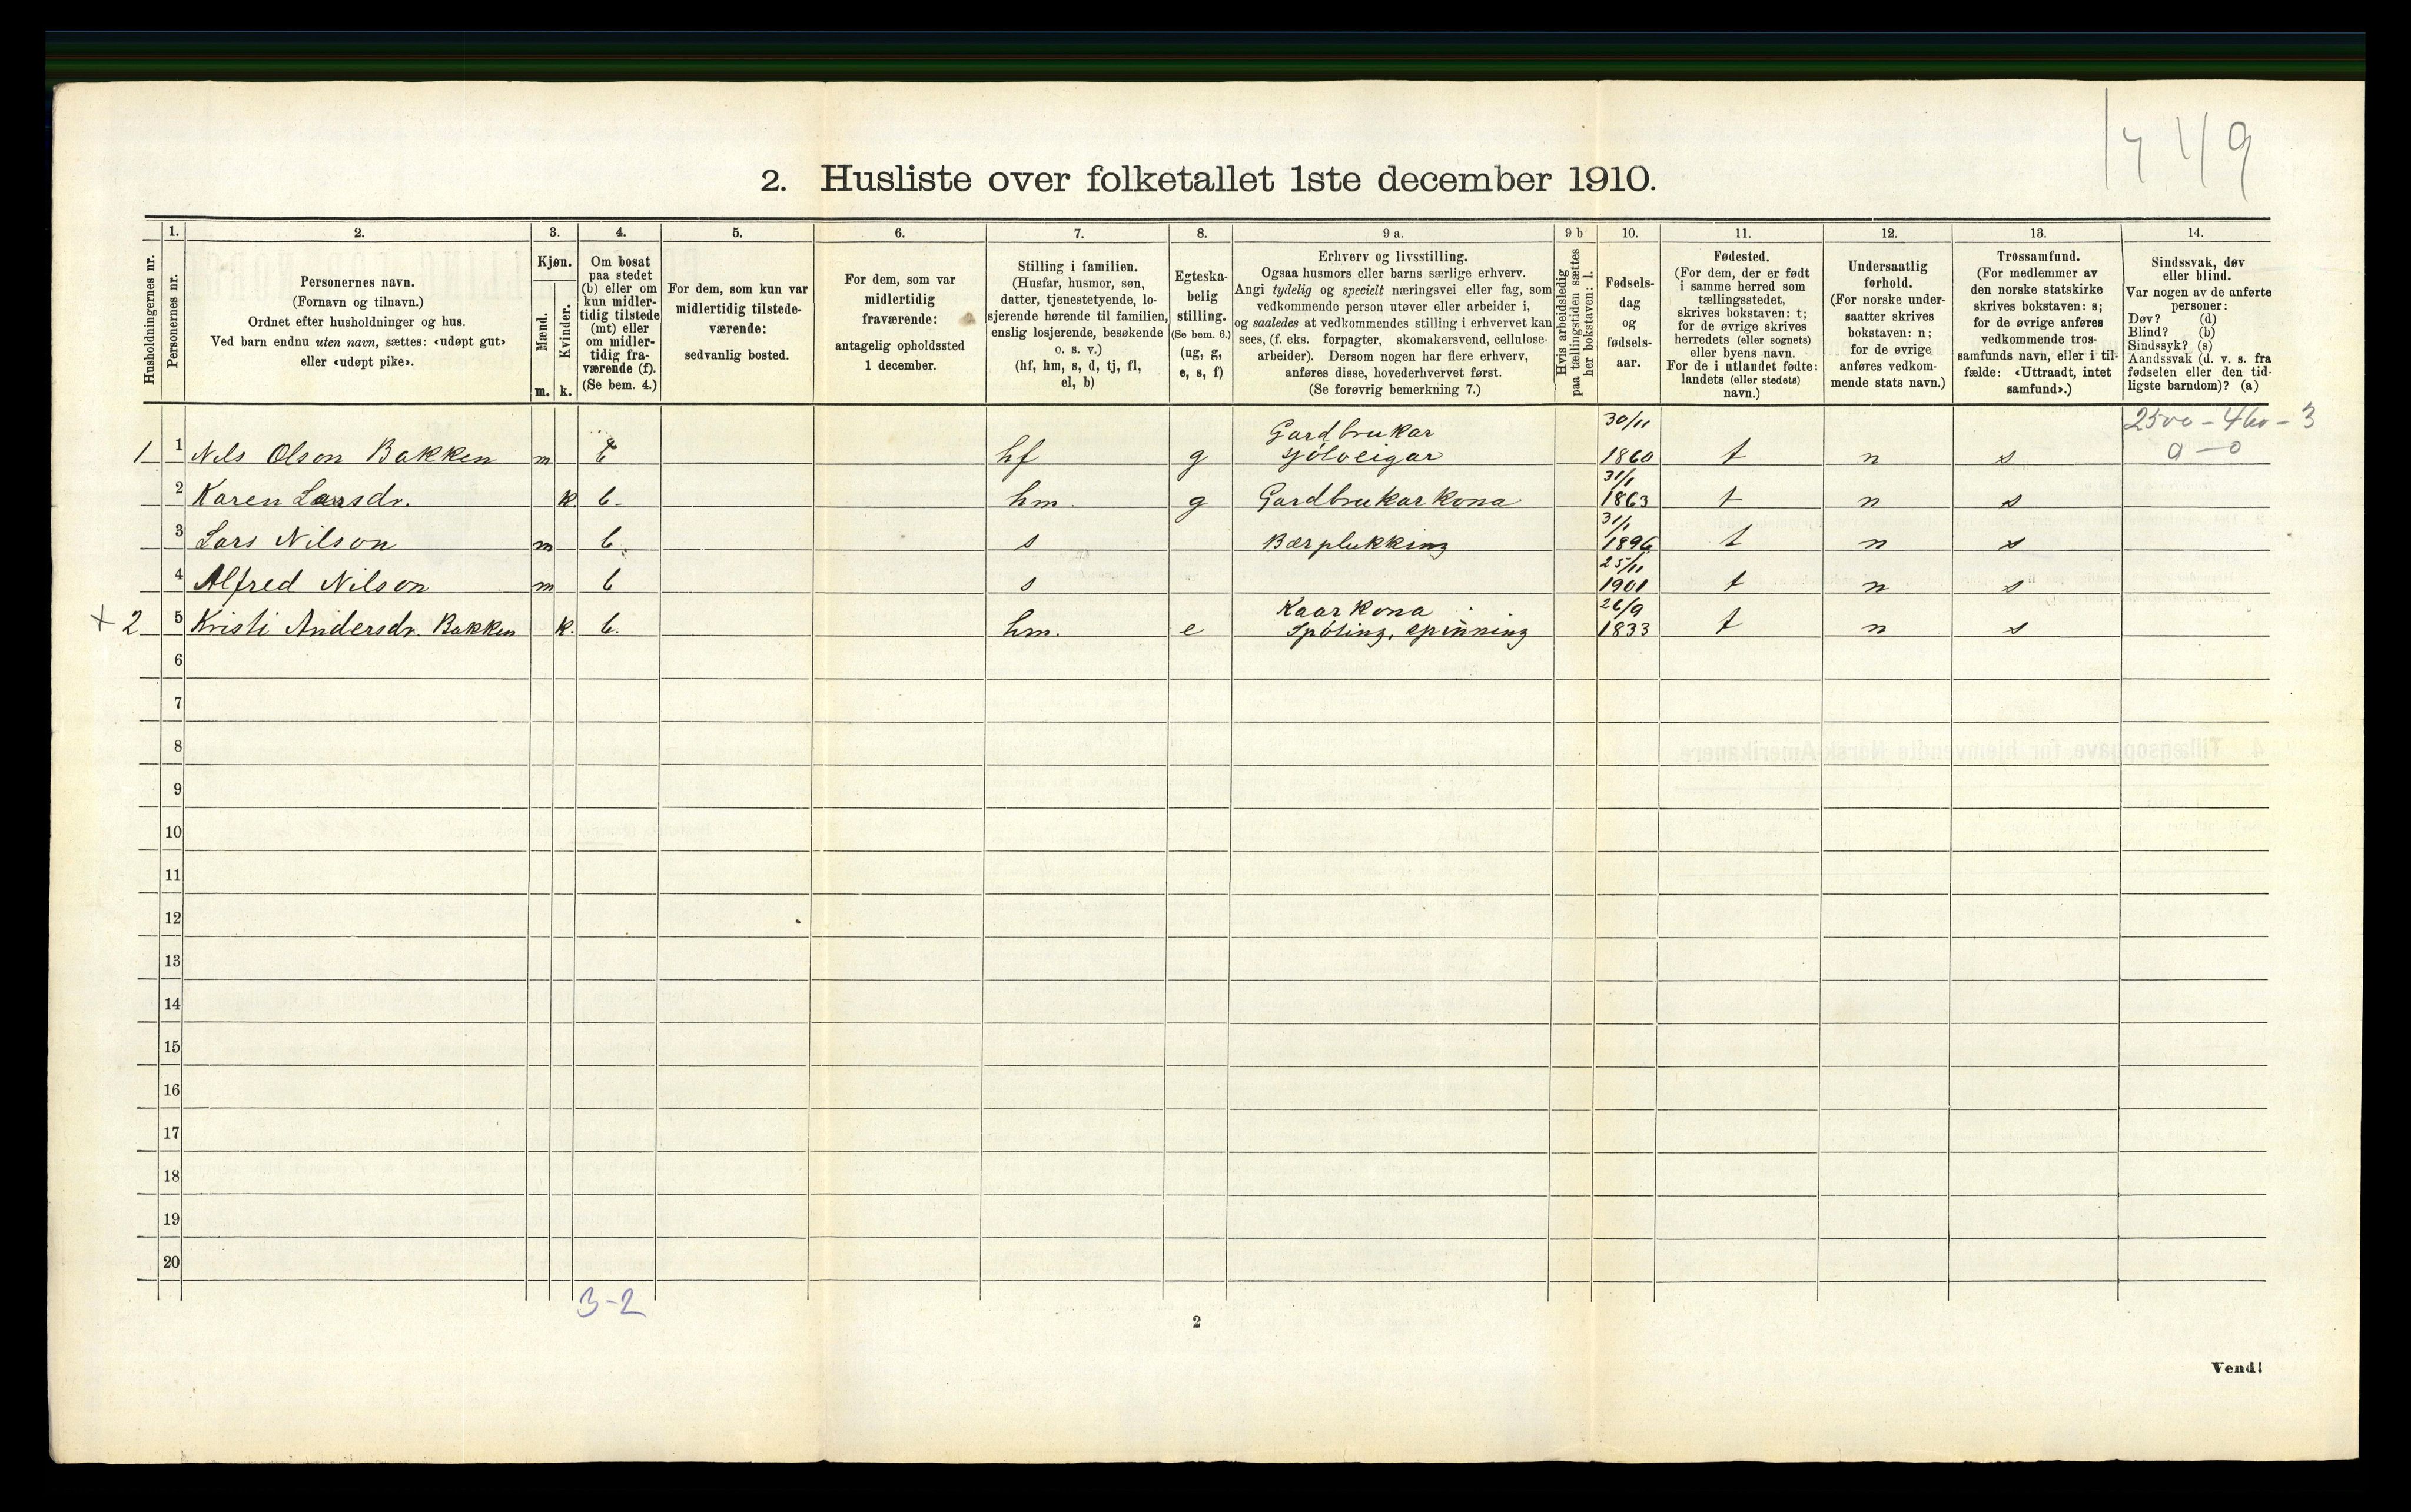 2. Husliste over folketallet 1ste december 1910.
Husholdningernes nr.
1.
Personernes nr.
2.
Personernes navn.
(Fornavn og tilnavn.)
Ordnet efter husholdninger og hus.
Ved barn endnu uten navn, sættes: «udøpt gut»
eller «udøpt pike».
3.
Kjøn.
Mænd.
Kvinder.
m. k.
4.
Om bosat
paa stedet
(b) eller om
kun midler-
tidig tilstede
(mt) eller
om midler-
tidig fra-
værende (f).
(Se bem. 4.)
5.
For dem, som kun var
midlertidig tilstede-
værende:
sedvanlig bosted.
6.
For dem, som var
midlertidig
fraværende:
antagelig opholdssted
1 december.
7.
Stilling i familien.
(Husfar, husmor, søn,
datter, tjenestetyende, lo-
sjerende hørende til familien,
enslig losjerende, besøkende
o. s. v.)
(hf, hm, s, d, tj, fl,
el, b)
8.
Egteska-
belig
stilling.
(Se bem. 6.)
(ug, g,
e, s, f)
9 a.
Erhverv og livsstilling.
Ogsaa husmors eller barns særlige erhverv.
Angi tydelig og specielt næringsvei eller fag, som
vedkommende person utøver eller arbeider i,
og saaledes at vedkommendes stilling i erhvervet kan
sees, (f. eks. forpagter, skomakersvend, cellulose-
arbeider). Dersom nogen har flere erhverv,
anføres disse, hovederhvervet først.
(Se forøvrig bemerkning 7.)
9 b
Hvis arbeidsledig
paa tællingstiden sættes
her bokstaven: l.
10.
Fødsels-
dag
og
fødsels-
aar.
11.
Fødested.
(For dem, der er født
i samme herred som
tællingsstedet,
skrives bokstaven: t;
for de øvrige skrives
herredets (eller sognets)
eller byens navn.
For de i utlandet fødte:
landets (eller stedets)
navn.)
12.
Undersaatlig
forhold.
(For norske under-
saatter skrives
bokstaven: n;
for de øvrige
anføres vedkom-
mende stats navn.)
13.
Trossamfund.
(For medlemmer av
den norske statskirke
skrives bokstaven: s;
for de øvrige anføres
vedkommende tros-
samfunds navn, eller i til-
fælde: «Uttraadt, intet
samfund».)
14.
Sindssvak, døv
eller blind.
Var nogen av de anførte
personer:
Døv? (d)
Blind? (b)
Sindssyk? (s)
Aandssvak (d. v. s. fra
fødselen eller den tid-
ligste barndom)? (a)
2500 - 460 - 3
0 - 0
1 1 Nils Olson Bakken m b hf g Gardbrukar sjølveigar 30/11 1860 t n s
2 Karen Larsdr. k. b. hm. g Gardbrukarkona 31/1 1863 t n s
3 Lars Nilson m b. s Bærplukking 31/1 1896 t n s
4 Alfred Nilson m b s 25/11 1901 t n s
+ 2 5 Kristi Andersdr. Bakken k. b. hm. e Kaarkona Spøting, spinning 26/9 1833 t n s
6
7
8
9
10
11
12
13
14
15
16
17
18
19
20
3-2
2
Vend!